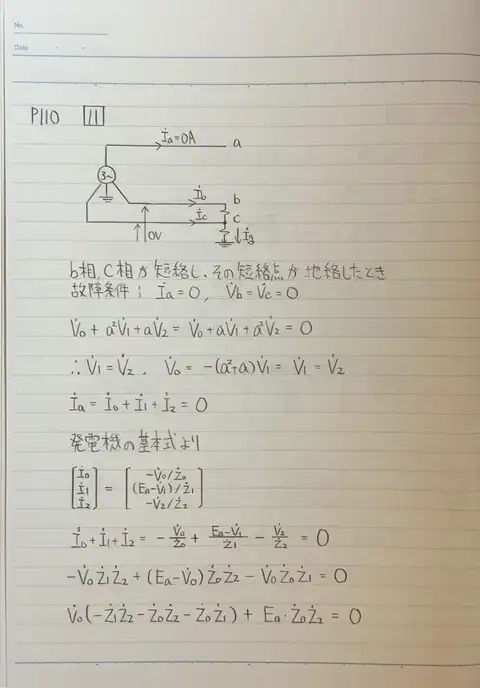 No.
Date
P110 11
İa=0A a
3~
İb b
İc c
0V İg
b相,C相が短絡し、その短絡点が地絡したとき
故障条件; İa=0, V̇b=V̇c=0
V̇0+a²V̇1+aV̇2=V̇0+aV̇1+a²V̇2=0
∴V̇1=V̇2, V̇0=-(a²+a)V̇1=V̇1=V̇2
İa=İ0+İ1+İ2=0
発電機の基本式より
[İ0 İ1 İ2] = [-V̇0/Ż0 (Ėa-V̇1)/Ż1 -V̇2/Ż2]
İ0+İ1+İ2=-V̇0/Ż0+(Ėa-V̇1)/Ż1-V̇2/Ż2=0
-V̇0Ż1Ż2+(Ėa-V̇0)Ż0Ż2-V̇0Ż0Ż1=0
V̇0(-Ż1Ż2-Ż0Ż2-Ż0Ż1)+Ėa·Ż0Ż2=0